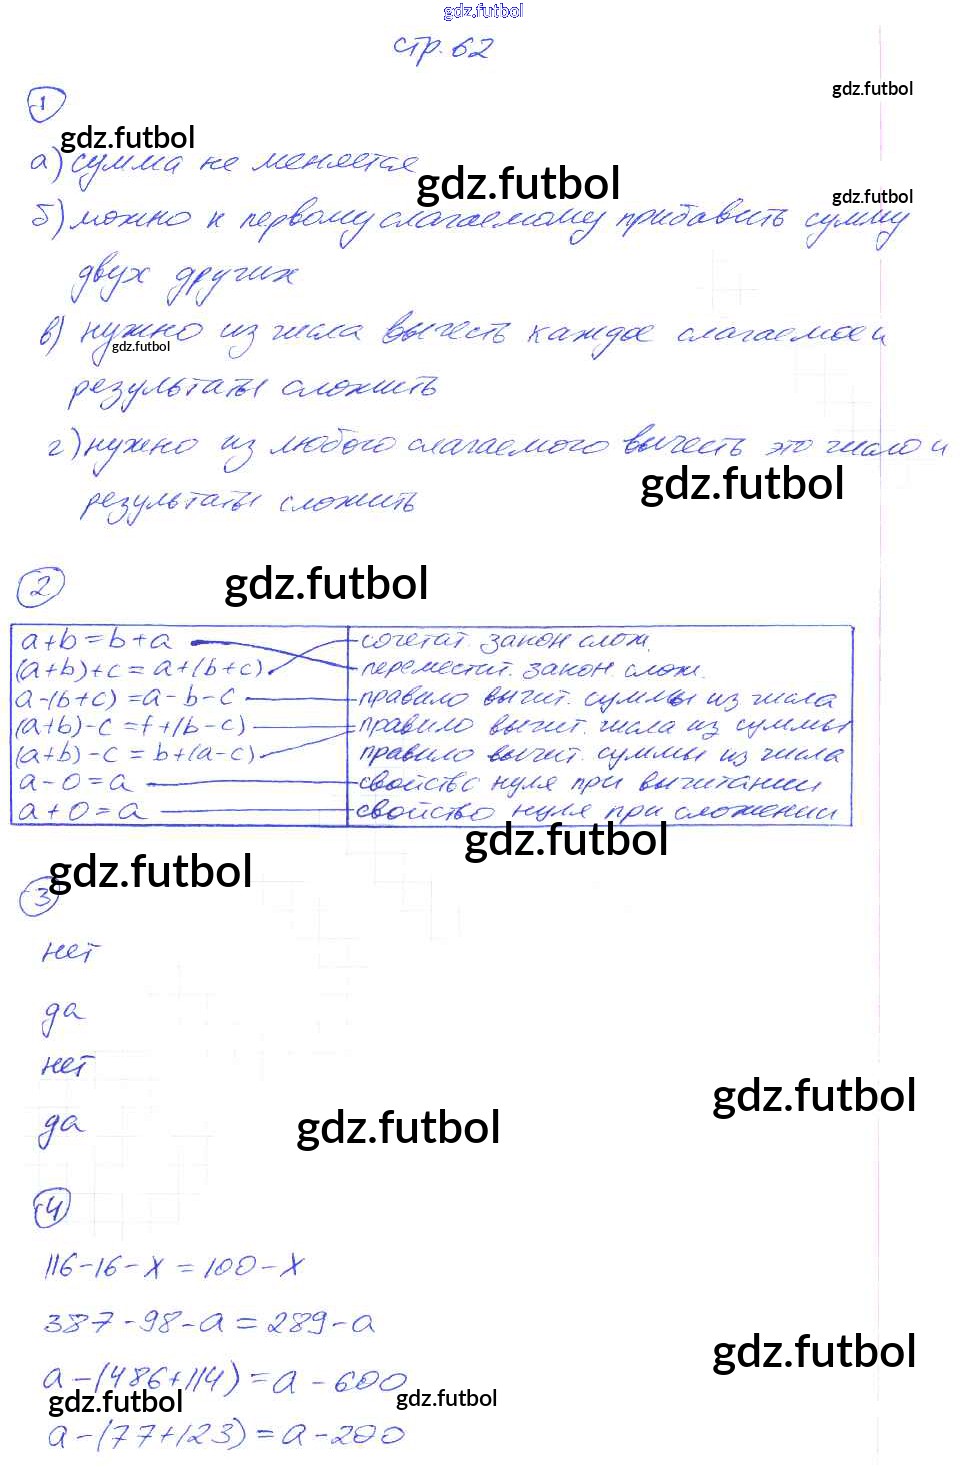 gdz.futbol
стр. 62
1
gdz.futbol
gdz.futbol
а) сумма не меняется
gdz.futbol
gdz.futbol
б) можно к первому слагаемому прибавить сумму
двух других
в) нужно из числа вычесть каждое слагаемое и
gdz.futbol
результаты сложить
г) нужно из любого слагаемого вычесть это число и
gdz.futbol
результаты сложить
2
gdz.futbol
a+b=b+a сочетат. закон слож.
(a+b)+c=a+(b+c) переместит. закон слож.
a-(b+c)=a-b-c правило вычит. суммы из числа
(a+b)-c=f+(b-c) правило вычит. числа из суммы
(a+b)-c=b+(a-c) правило вычит. суммы из числа
a-0=a свойство нуля при вычитании
a+0=a свойство нуля при сложении
gdz.futbol
gdz.futbol
3
нет
да
нет
gdz.futbol
да
gdz.futbol
4
116-16-x=100-x
387-98-a=289-a
gdz.futbol
a-(486+114)=a-600
gdz.futbol
gdz.futbol
a-(77+123)=a-200